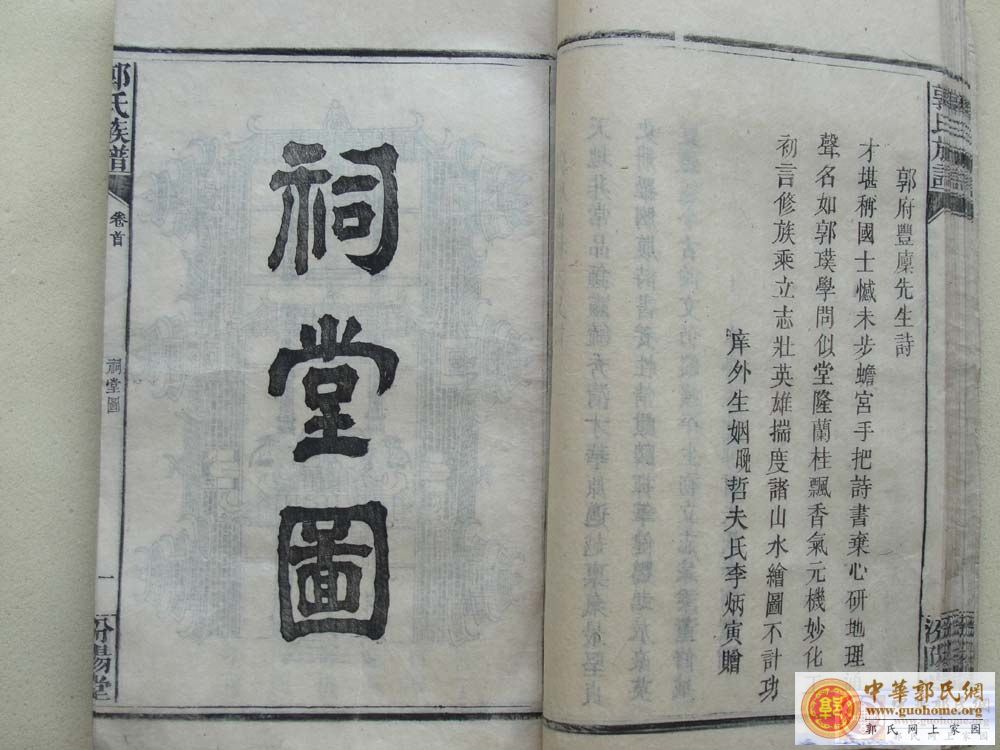 郭氏族譜
郭府豐廩先生詩
才堪稱國士憾未步蟾宮手把詩書棄心研地理
聲名如郭璞學問似堂隆蘭桂飄香氣元機妙化
初言修族乘立志壯英雄揣度諸山水繪圖不計功
庠外生姻晚哲夫氏李炳寅贈
祠堂圖
郭氏族譜
卷首
祠堂圖
一
汾陽堂
中華郭氏網
www.guohome.org
郭氏网上家园